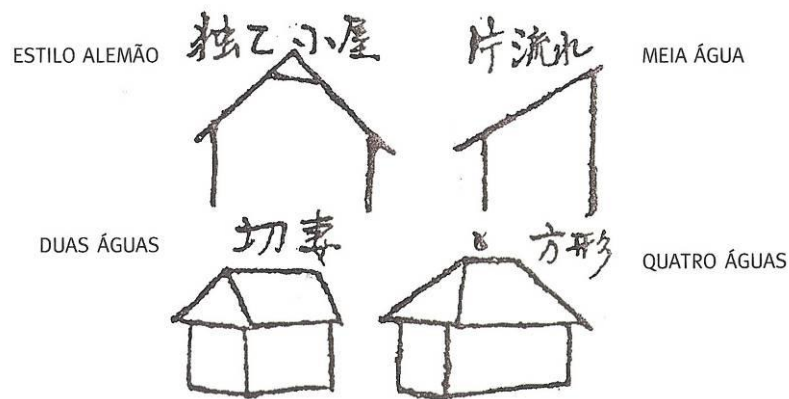 ESTILO ALEMÃO
独乙小屋
片流れ
MEIA ÁGUA
DUAS ÁGUAS
切妻
方形
QUATRO ÁGUAS